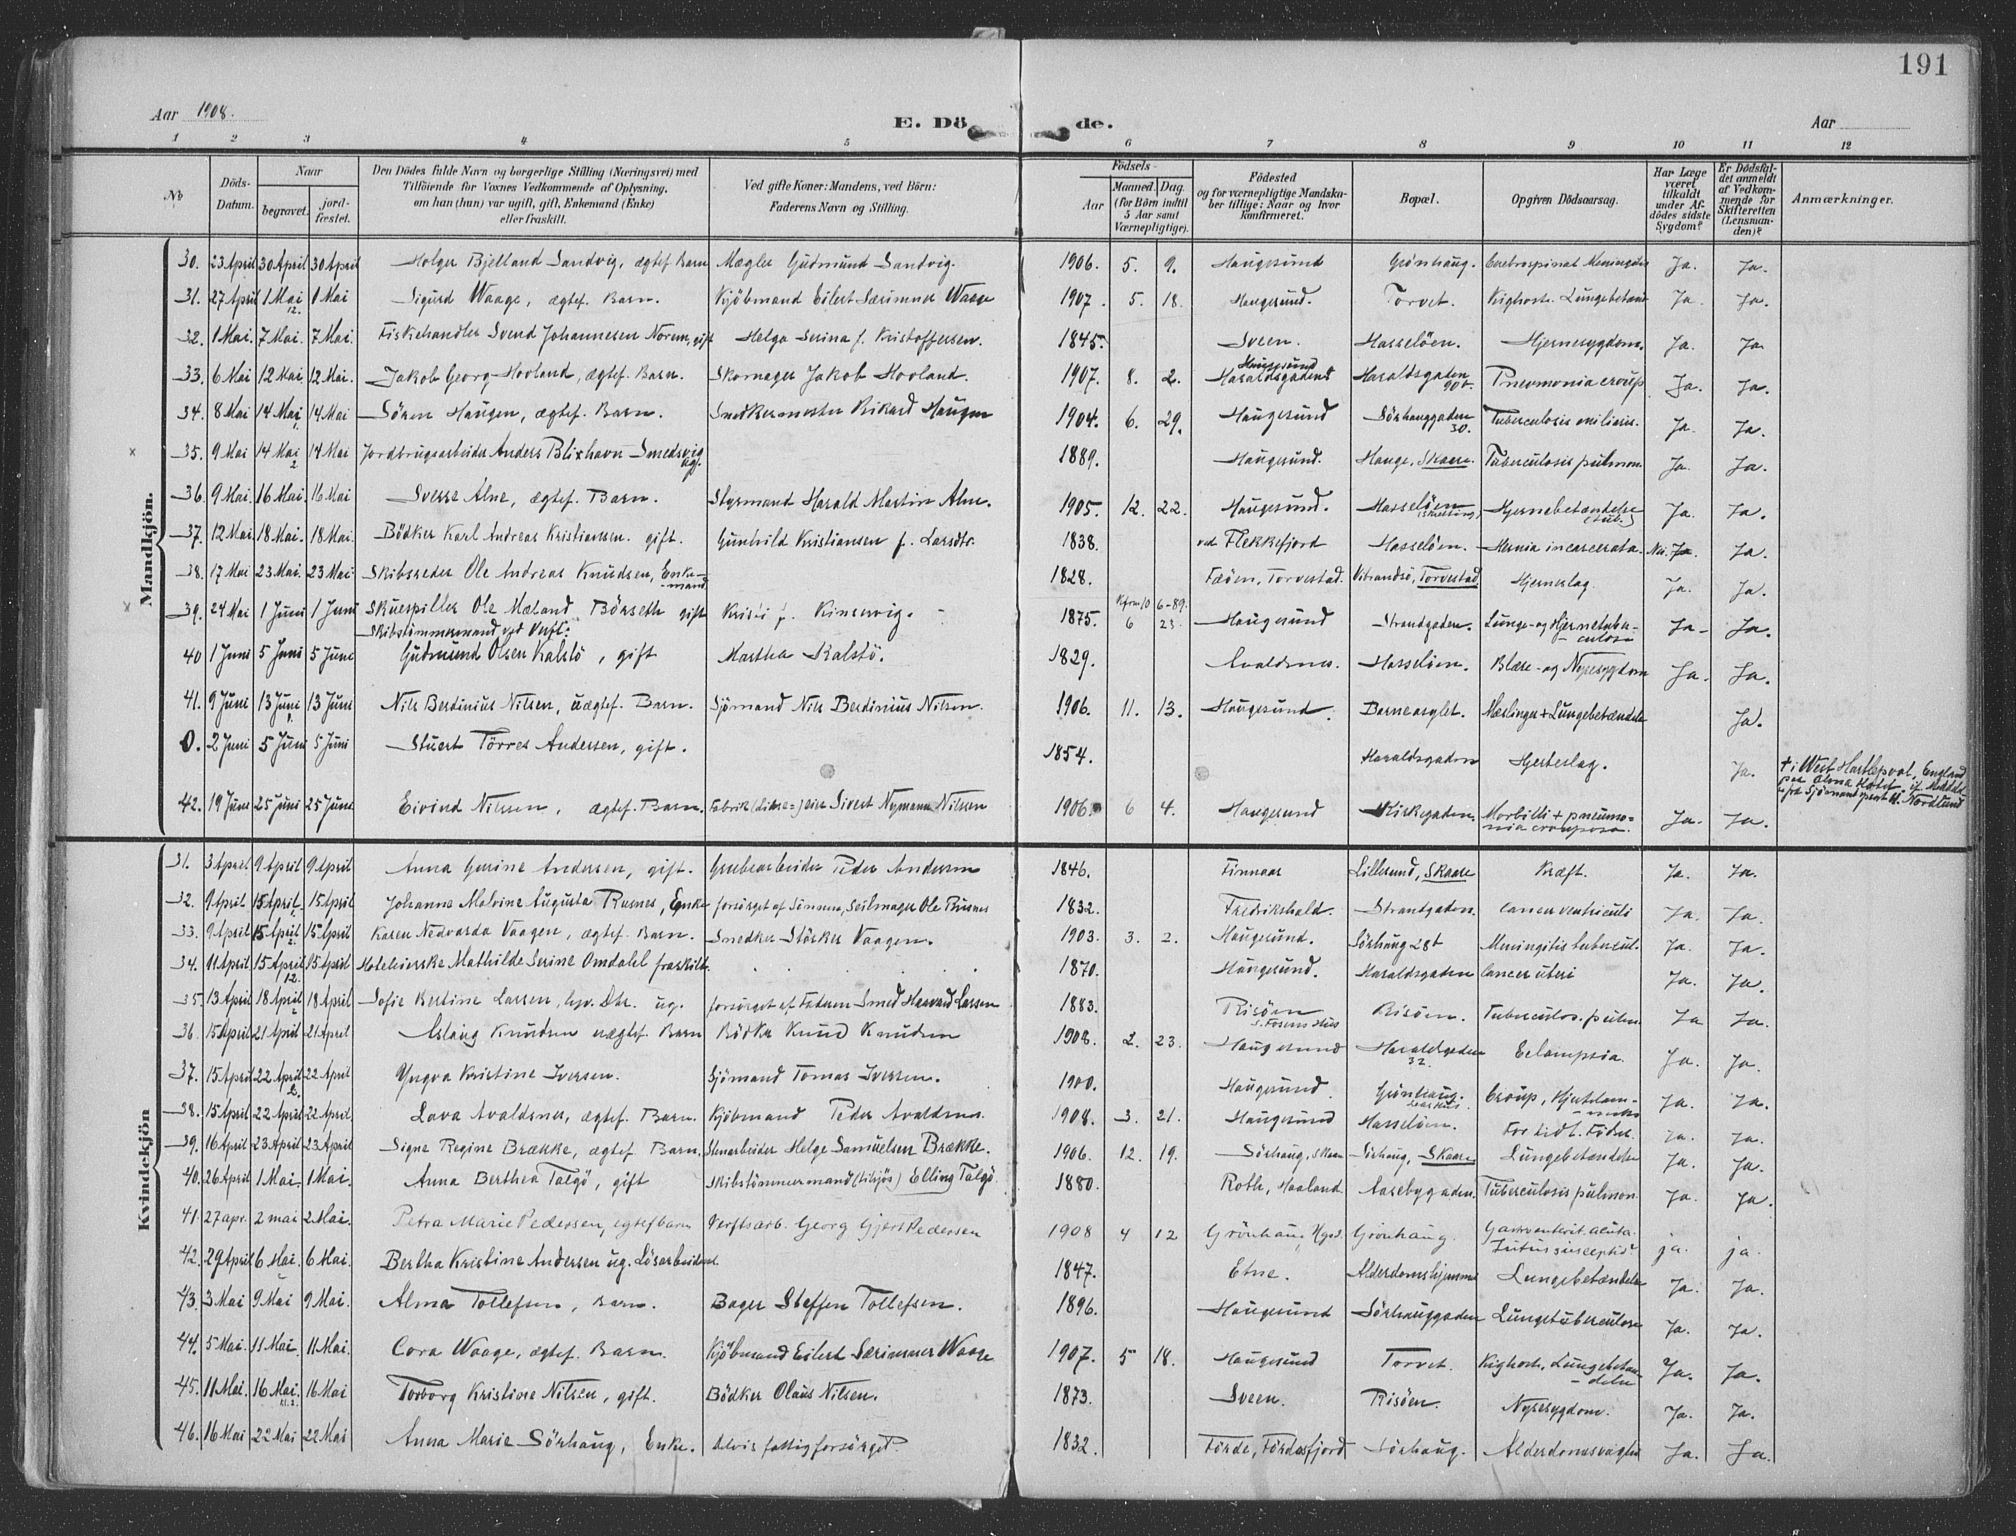 191
Aar 1908.
E. Döde.
Aar
1 2 3 4 5 6 7 8 9 10 11 12
No
Döds-Datum.
Naar
begravet.
jord-fæstet.
Den Dödes fulde Navn og borgerlige Stilling (Næringsvei) med
Tilföiende for Voxnes Vedkommende af Oplysning,
om han (hun) var ugift, gift, Enkemand (Enke)
eller fraskilt.
Ved gifte Koner: Mandens, ved Börn:
Faderens Navn og Stilling.
Födsels-
Aar
Maaned. Dag.
(for Börn indtil
5 Aar samt
Værnepligtige).
Födested
og for værnepligtige Mandska-
ber tillige: Naar og hvor
konfirmeret.
Bopæl.
Opgiven Dödsaarsag.
Har Læge
været
tilkaldt
under Af-
dödes sidste
Sygdom?
Er Dödsfal-
det anmeldt
af Vedkom-
mende for
Skifteretten
(Lensman-
den)?
Anmærkninger.
Mandkjön.
30. 23 April 30 April 30 April Holger Bjelland Sandvig, ægtef. Barn Mægler Gudmund Sandvig. 1906. 5. 9. Haugesund Grönhaug. Cerebrospinal Meningitis Ja. Ja.
31. 27 April 1 Mai 1 Mai Sigurd Waage, ægtef. Barn. Kjöbmand Eilert Særimner Waage 1907. 5. 18. Haugesund. Torvet. Kighoste. Lungebetænd Ja. Ja.
32. 1 Mai. 7 Mai. 7 Mai. Fiskehandler Svend Johannesen Norem, gift Helga Serina f. Kristoffersen. 1845. Sveen. Hasselöen. Hjernesygdom. Ja. Ja
33. 6 Mai 12 Mai. 12 Mai. Jakob Georg Hovland, ægtef. Barn. Skomager Jakob Hovland. 1907. 8. 2. Haugesund Haraldsgaden Haraldsgaden 90b. Pneumonia croup. Ja. Ja.
34. 8 Mai 14 Mai 14 Mai Sören Haugen, ægtef. Barn. Snedkermester Rikard Haugen 1904. 6. 29. Haugesund Sörhauggaden 30. Tuberculosis miliaris. Ja. Ja.
35. 9 Mai 14 Mai 14 Mai Jordbrugsarbeider Anders Blixhavn Smedsvig ug. 1889. Haugesund. Hauge, Skaare. Tuberculosis pulmon. Ja. Ja.
36. 9 Mai. 16 Mai. 16 Mai Sverre Alne, ægtef. Barn. Styrmand Harald Martin Alne. 1905. 12. 22. Haugesund. Hasselöen Hjernebetændelse (tub.) Ja. Ja.
37. 12 Mai 18 Mai. 18 Mai. Bödker Karl Andreas Kristiansen. gift. Gunhild Kristiansen f. Larsdtr. 1838. ved Flekkefjord Hasselöen. Hernia incarcerata. Nei. Ja. Ja.
38. 17 Mai 23 Mai. 23 Mai. Skibsreder Ole Andreas Knudsen, Enkemand. 1828. Fæöen, Torvestad. Vibrandsö, Torvestad Hjerneslag. Ja. Ja.
39. 24 Mai 1 Juni 1 Juni Skuespiller Ole Mæland Börseth gift Kristi f. Kinservig. 1875. Kfrm 10 6-89. 6 23. Haugesund Strandgaden. Lunge- og Hjernetuberculose Ja. Ja.
40 1 Juni 5 Juni 5 Juni Skibstömmermand ved Verft. Gudmund Olsen Kalstö, gift Martha Kalstö. 1829. Avaldsnes. Hasselöen. Blære- og Nyresygdom Ja. Ja.
41. 9 Juni 13 Juni 13 Juni Nils Berdinius Nilsen, uægtef. Barn. Sjömand Nils Berdinius Nilsen. 1906. 11. 13. Haugesund. Barneasylet. Mæslinger + Lungebetændelse Ja.
0. 2 Juni 5 Juni 5 Juni Stuert Törres Andersen, gift. 1854. Haraldsgaden Hjerteslag. Ja. † i West Hartlepool, England
fra Sjömandsprest H. Nordlund
42. 19 Juni 25 Juni 25 Juni Eivind Nilsen, ægtef. Barn. Sivert Nymann Nilsen 1906. 6 4. Haugesund Kirkegaden. Morbilli + pneumonia crouposa. Ja. Ja.
Kvindekjön
31. 3 April 9 April 9 April Anna Gurine Andersen, gift. Grubearbeider Peder Andersen 1846. Finnaas Lillesund, Skaare Kræft. Ja. Ja.
32. 9 April 15 April. 15 April Johanne Malvine Augusta Rusnes, Enke forsörget af Sönnen, Seilmager Ole Rusnes 1832. Fredrikshald. Strandgaden. Cancer ventriculi Ja. Ja.
33. 9 April 15 April 15 April Karen Nedvarda Vaagen, ægtef. Barn. Snedker Störker Vaagen. 1903. 3. 2. Haugesund. Sörhaug 28b Meningitis tubercul. Ja. Ja.
34. 11 April 15 April 15 April Hoteleierske Mathilde Serine Omdahl fraskilt. 1870. Haugesund. Haraldsgaden Cancer uteri Ja. Ja.
35. 13 April 18 April 18 April Sofie Bertine Larsen, hjv. Dtr. ug. forsörget af Faderen Smed Haavard Larsen 1883. Risöen Risöen. Tuberculos. pulm. Ja Ja.
36. 15 April 21 April 21 April Aslaug Knudsen uægtef. Barn Bödker Knud Knudsen 1908. 2. 23. Haugesund Haraldsgaden 32. Eclampsia. Ja. Ja.
37. 15 April 22 April 22 April Yngva Kristine Iversen. Sjömand Tomas Iversen. 1900. Haugesund. Grönhaug. Croup, Ja. Ja.
38. 15 April 22 April 22 April Lava Avaldsnes, ægtef. Barn. Kjöbmand Peder Avaldsnes. 1908. 3. 21. Haugesund Hasselöen. For tidl. Födsel. Ja. Ja.
39. 16 April 23 April 23 April Signe Regine Brække, ægtef. Barn. Stenarbeider Helge Samuelsen Brække. 1906. 12. 19. Sörhaug, Skaare Sörhaug, Skaare Lungebetændelse Ja. Ja.
40. 26 April 1 Mai. 1 Mai. Anna Berthea Talgö, gift Skibstömmermand (tilsjös) Elling Talgö. 1880. Roth, Haaland. Aasebygaden. Tuberculosis pulmon. Ja. Ja.
41. 27 apr. 2 mai 2 Mai. Petra Marie Pedersen, egtef barn Verftsarb. Georg Gjert Pedersen 1908 4 12 Grönhaug, Hgsd. Grönhaug. Gastroenterit. acuta. ja. ja.
42. 29 April 6 Mai. 6 Mai. Bertha Kristine Andersen ug. Lösarbeidersk. 1847. Etne. Alderdomshjemmet Lungebetændelse Ja. Ja.
43. 3 Mai 9 Mai 9 Mai. Alma Tollefsen, Barn. Bager Steffen Tollefsen. 1896. Haugesund Sörhauggaden Lungetuberculose Ja. Ja.
44. 5 Mai. 11 Mai. 11 Mai. Cora Waage, ægtef. Barn. Kjöbmand Eilert Særimner Waage 1907. 5 18. Haugesund Torvet. Kighoste, Lungebetændelse Ja. Ja.
45. 11 Mai. 16 Mai. 16 Mai Torborg Kristine Nilsen, gift. Bödker Olaus Nilsen. 1873. Sveen. Risöen. Nyresygdom. Ja. Ja.
46. 16 Mai 22 Mai 22 Mai Anna Marie Sörhaug, Enke. delvis fattigforsörget. 1832. Förde, Fördesfjord Sörhaug. Alderdomssvaghed Ja. Ja.